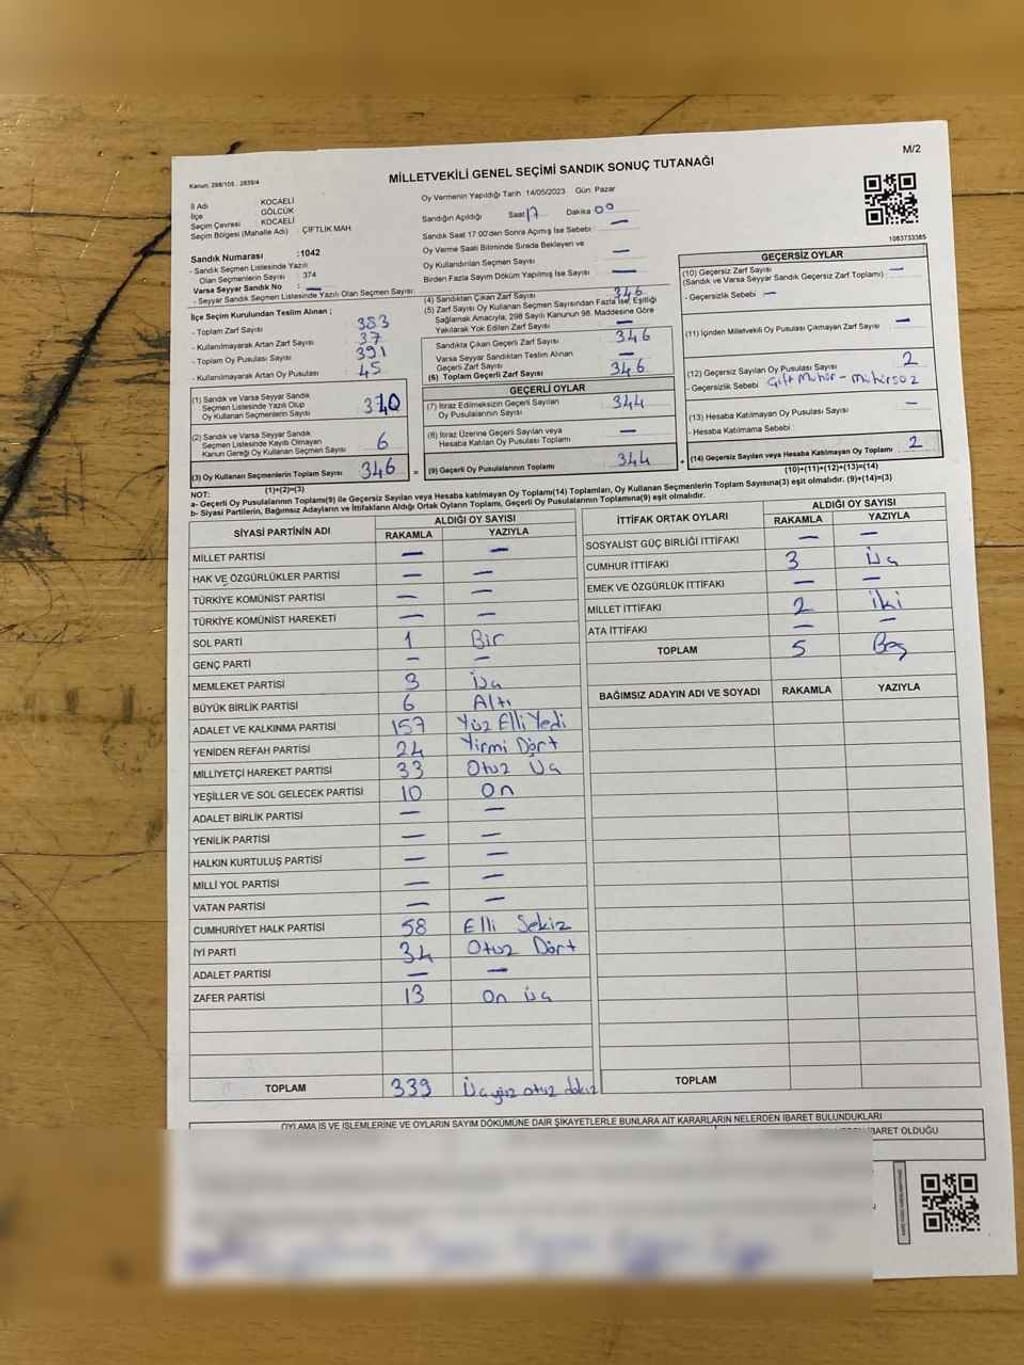 M/2
Kanun: 298/105 - 2839/4
MİLLETVEKİLİ GENEL SEÇİMİ SANDIK SONUÇ TUTANAĞI
İl Adı KOCAELİ
İlçe GÖLCÜK
Seçim Çevresi KOCAELİ
Seçim Bölgesi (Mahalle Adı) ÇİFTLİK MAH
Sandık Numarası :1042
- Sandık Seçmen Listesinde Yazılı
Olan Seçmenlerin Sayısı : 374
Varsa Seyyar Sandık No : —
- Seyyar Sandık Seçmen Listesinde Yazılı Olan Seçmen Sayısı:
İlçe Seçim Kurulundan Teslim Alınan ;
- Toplam Zarf Sayısı 383
- Kullanılmayarak Artan Zarf Sayısı 37
- Toplam Oy Pusulası Sayısı 391
- Kullanılmayarak Artan Oy Pusulası 45
(1) Sandık ve Varsa Seyyar Sandık
Seçmen Listesinde Yazılı Olup
Oy Kullanan Seçmenlerin Sayısı 340
(2) Sandık ve Varsa Seyyar Sandık
Seçmen Listesinde Kayıtlı Olmayan
Kanun Gereği Oy Kullanan Seçmen Sayısı 6
(3) Oy Kullanan Seçmenlerin Toplam Sayısı 346
(1)+(2)=(3)
Oy Vermenin Yapıldığı Tarih :14/05/2023 Gün: Pazar
Sandığın Açıldığı Saat 17 Dakika 00
Sandık Saat 17:00'den Sonra Açılmış İse Sebebi : —
Oy Verme Saati Bitiminde Sırada Bekleyen ve
Oy Kullandırılan Seçmen Sayısı —
Birden Fazla Sayım Döküm Yapılmış İse Sayısı —
(4) Sandıktan Çıkan Zarf Sayısı 346
(5) Zarf Sayısı Oy Kullanan Seçmen Sayısından Fazla İse, Eşitliği
Sağlamak Amacıyla, 298 Sayılı Kanunun 98. Maddesine Göre
Yakılarak Yok Edilen Zarf Sayısı —
Sandıkta Çıkan Geçerli Zarf Sayısı 346
Varsa Seyyar Sandıktan Teslim Alınan
Geçerli Zarf Sayısı —
(6) Toplam Geçerli Zarf Sayısı 346
GEÇERLİ OYLAR
(7) İtiraz Edilmeksizin Geçerli Sayılan
Oy Pusulalarının Sayısı 344
(8) İtiraz Üzerine Geçerli Sayılan veya
Hesaba Katılan Oy Pusulası Toplamı —
= (9) Geçerli Oy Pusulalarının Toplamı 344 +
1083753385
GEÇERSİZ OYLAR
(10) Geçersiz Zarf Sayısı —
(Sandık ve Varsa Seyyar Sandık Geçersiz Zarf Toplamı)
- Geçersizlik Sebebi : —
(11) İçinden Milletvekili Oy Pusulası Çıkmayan Zarf Sayısı —
(12) Geçersiz Sayılan Oy Pusulası Sayısı 2
- Geçersizlik Sebebi : Çift Mühür - mühürsüz
(13) Hesaba Katılmayan Oy Pusulası Sayısı —
- Hesaba Katılmama Sebebi :
(14) Geçersiz Sayılan veya Hesaba Katılmayan Oy Toplamı 2
(10)+(11)+(12)+(13)=(14)
NOT:
a- Geçerli Oy Pusulalarının Toplamı(9) ile Geçersiz Sayılan veya Hesaba katılmayan Oy Toplamı(14) Toplamları, Oy Kullanan Seçmenlerin Toplam Sayısına(3) eşit olmalıdır. (9)+(14)=(3)
b- Siyasi Partilerin, Bağımsız Adayların ve İttifakların Aldığı Ortak Oyların Toplamı, Geçerli Oy Pusulalarının Toplamına(9) eşit olmalıdır.
SİYASİ PARTİNİN ADI ALDIĞI OY SAYISI
RAKAMLA YAZIYLA
MİLLET PARTİSİ — —
HAK VE ÖZGÜRLÜKLER PARTİSİ — —
TÜRKİYE KOMÜNİST PARTİSİ — —
TÜRKİYE KOMÜNİST HAREKETİ — —
SOL PARTİ 1 Bir
GENÇ PARTİ — —
MEMLEKET PARTİSİ 3 Üç
BÜYÜK BİRLİK PARTİSİ 6 Altı
ADALET VE KALKINMA PARTİSİ 157 Yüz Elli Yedi
YENİDEN REFAH PARTİSİ 24 Yirmi Dört
MİLLİYETÇİ HAREKET PARTİSİ 33 Otuz Üç
YEŞİLLER VE SOL GELECEK PARTİSİ 10 On
ADALET BİRLİK PARTİSİ — —
YENİLİK PARTİSİ — —
HALKIN KURTULUŞ PARTİSİ — —
MİLLİ YOL PARTİSİ — —
VATAN PARTİSİ — —
CUMHURİYET HALK PARTİSİ 58 Elli Sekiz
İYİ PARTİ 34 Otuz Dört
ADALET PARTİSİ — —
ZAFER PARTİSİ 13 On Üç
TOPLAM 339 Üçyüz otuz dokuz
İTTİFAK ORTAK OYLARI ALDIĞI OY SAYISI
RAKAMLA YAZIYLA
SOSYALİST GÜÇ BİRLİĞİ İTTİFAKI — —
CUMHUR İTTİFAKI 3 Üç
EMEK VE ÖZGÜRLÜK İTTİFAKI — —
MİLLET İTTİFAKI 2 İki
ATA İTTİFAKI — —
TOPLAM 5 Beş
BAĞIMSIZ ADAYIN ADI VE SOYADI RAKAMLA YAZIYLA
TOPLAM
OYLAMA İŞ VE İŞLEMLERİNE VE OYLARIN SAYIM DÖKÜMÜNE DAİR ŞİKAYETLERLE BUNLARA AİT KARARLARIN NELERDEN İBARET BULUNDUKLARI
İBARET OLDUĞU